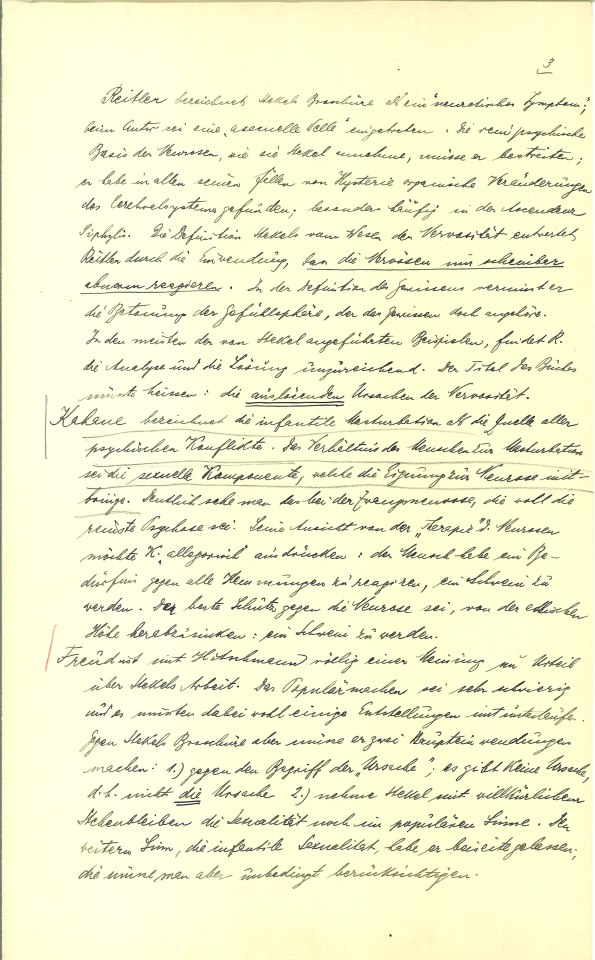 3
Reitler bezeichnet Stekels Broschüre als ein "neurotisches Symptom";
beim Autor sei eine "asexuelle Welle" eingetreten. Die rein psychische
Basis der Neurosen, wie sie Stekel annehme, müsse er bestreiten;
er habe in allen seinen Fällen von Hysterie organische Veränderungen
des Cerebralsystems gefunden; besonders häufig in der Ascendenz
Siphylis. Die Definition Stekels vom Wesen der Nervosität entwertet
Reitler durch die Einwendung, dass die Nervösen nur scheinbar
abnorm reagieren. In der Definition des Gewissens vermisst er
die Betonung der Gefühlsphäre, der das Gewissen doch angehöre.
In den meisten der von Stekel angeführten Beispielen, findet R.
die Analyse und die Lösung unzureichend. Der Titel des Buches
müsste heissen: die auslösenden Ursachen der Nervosität.
Kahane bezeichnet die infantile Masturbation als die Quelle aller
psychischen Konflickte. Das Verhältnis des Menschen zur Masturbation
sei die sexuelle Komponente, welche die Eignung zur Neurose mit-
bringe. Deutlich sehe man das bei der Zwangsneurose, die wohl die
reinste Psychose sei. Seine Ansicht von der "Therapie" d. Neurosen
möchte K. allegorisch ausdrücken: der Mensch habe ein Be-
dürfnis gegen alle Hemmungen zu reagiren, ein Schwein zu
werden. Der beste Schutz gegen die Neurose sei, von der ethischen
Höhe herabzusinken: ein Schwein zu werden.
Freud ist mit Hitschmann völlig einer Meinung im Urteil
über Stekels Arbeit. Das Populärmachen sei sehr schwierig
und es müssten dabei wohl einige Entstellungen mit unterlaufen.
Gegen Stekels Broschüre aber müsse er zwei Haupteinwendungen
machen: 1.) gegen den Begriff der "Ursache"; es gibt keine Ursache,
d.h. nicht die Ursache 2.) nehme Stekel mit willkürlichem
Stehenbleiben die Sexualität noch im populären Sinne. Den
weitern Sinn, die infantile Sexualität, habe er beiseite gelassen;
die müsse man aber unbedingt berücksichtigen.